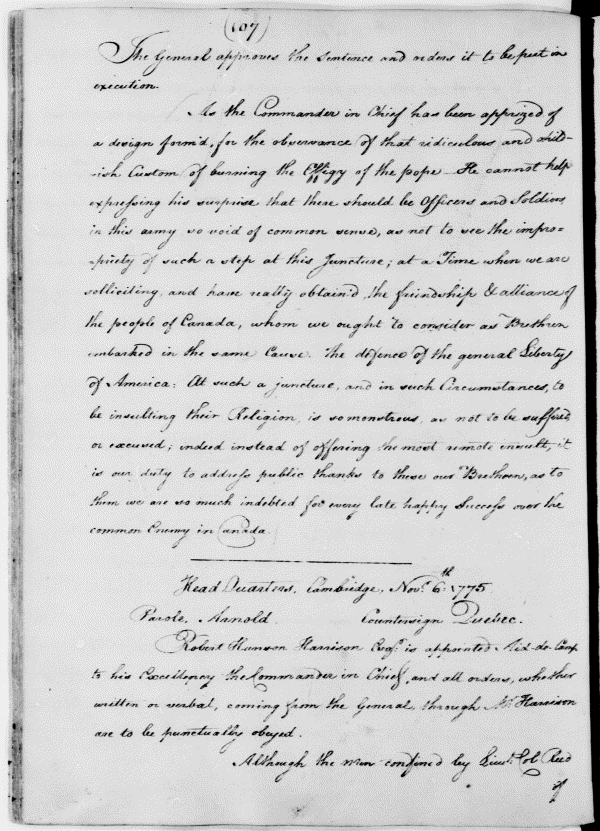 (107)
The General approves the Sentence and orders it to be put in
execution.
As the Commander in Chief has been apprized of
a design form'd, for the observance of that ridiculous and child-
-ish Custom of burning the Effigy of the pope. He cannot help
expressing his surprise that there should be Officers and Soldiers,
in this army so void of common sense, as not to see the impro-
-priety of such a step at this Juncture; at a Time when we are
solliciting, and have really obtain'd, the friendship & alliance of
the people of Canada, whom we ought to consider as Brethren
embarked in the same Cause. The defence of the general Liberty
of America: At such a juncture, and in such Circumstances, to
be insulting their Religion, is so monstrous, as not to be suffered,
or excused; indeed instead of offering the most remote insult, it
is our duty to address public thanks to these our Brethren, as to
them we are so much indebted for every late happy Success over the
common Enemy in Canada.
Head Quarters, Cambridge, Novr. 6th. 1775
Parole, Arnold. Countersign Quebec.
Robert Hanson Harrison Esqr. is appointed Aid-de-Camp
to his Excellency the Commander in Chief, and all orders, whether
written or verbal, coming from the General, through Mr. Harrison
are to be punctually obeyed.
Although the men confined by Lieut. Col Reed
of